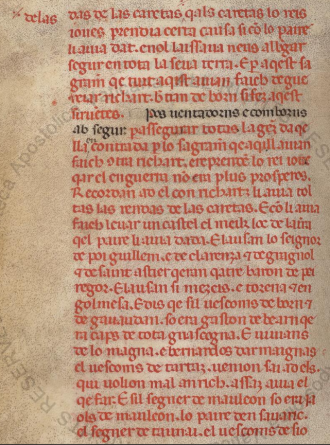 de las das de las caretas qals caretas lo reis
ioues prendia certa causa si cõ lo paire
li auia dat. enol laissaua neus albgar
segur en tota la seua terra. E p aqest sa
gram qe tuit aqist auian faich de gue
reiar richart. btram de born si fez aqest
siruẽtes. Pos uentadorns e comborns
ab segur. p assegurar totas las gẽz da qe
lla contrada p lo sagram qe aqill auian
faich cõtra richart. e reprenẽt lo rei ioue
qar el en guerra nõ era plus prosperos.
Recordan ad el con richartz li auia tol
tas las rendas de las caretas. E cõ li auia
faich leuar un castel el meilz loc de la
qel paire li auia dada. E lausan lo seignor
de poi guillem. e de clarenza ⁊ de grignol
⁊ de saint astier qeran qatre baron de pei
regor. E lausan si mezeis. e torena ⁊ en
golmesa. E dis qe sil uescoms de bern ⁊
de gauaudan. so era gaston de bearn qe
ra caps de tota gnascogna. E uiuians
de lo magna. e bernardos darmaignas
el uescoms de tartaz. uenion sai ad els.
qui uolion mal an rich. assaz auia el
qe far. E sil segner de mauleon so era ra
ols de mauleon. lo paire den sauaric.
el segner de taunai. el uescoms de sio